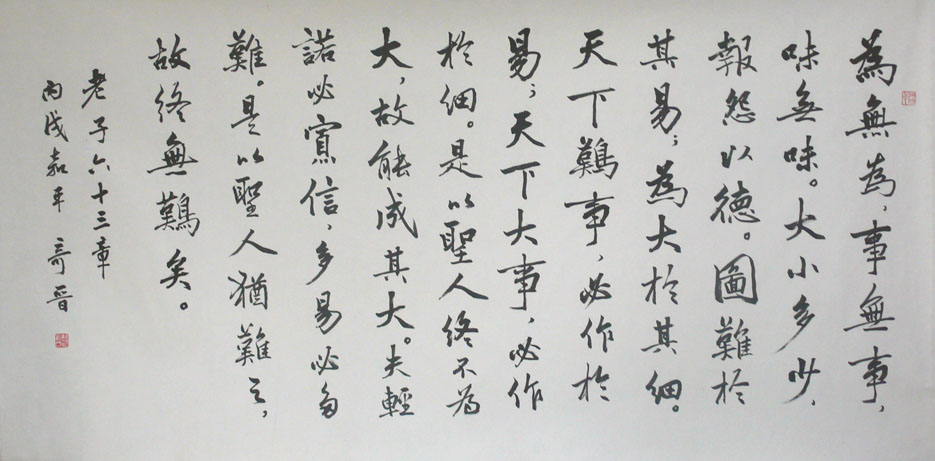 為無為，事無事，
味無味。大小多少，
報怨以德。圖難於
其易；為大於其細。
天下難事，必作於
易；天下大事，必作
於細。是以聖人終不為
大，故能成其大。夫輕
諾必寡信，多易必多
難。是以聖人猶難之，
故終無難矣。
老子六十三章
丙戌嘉平 奇晉